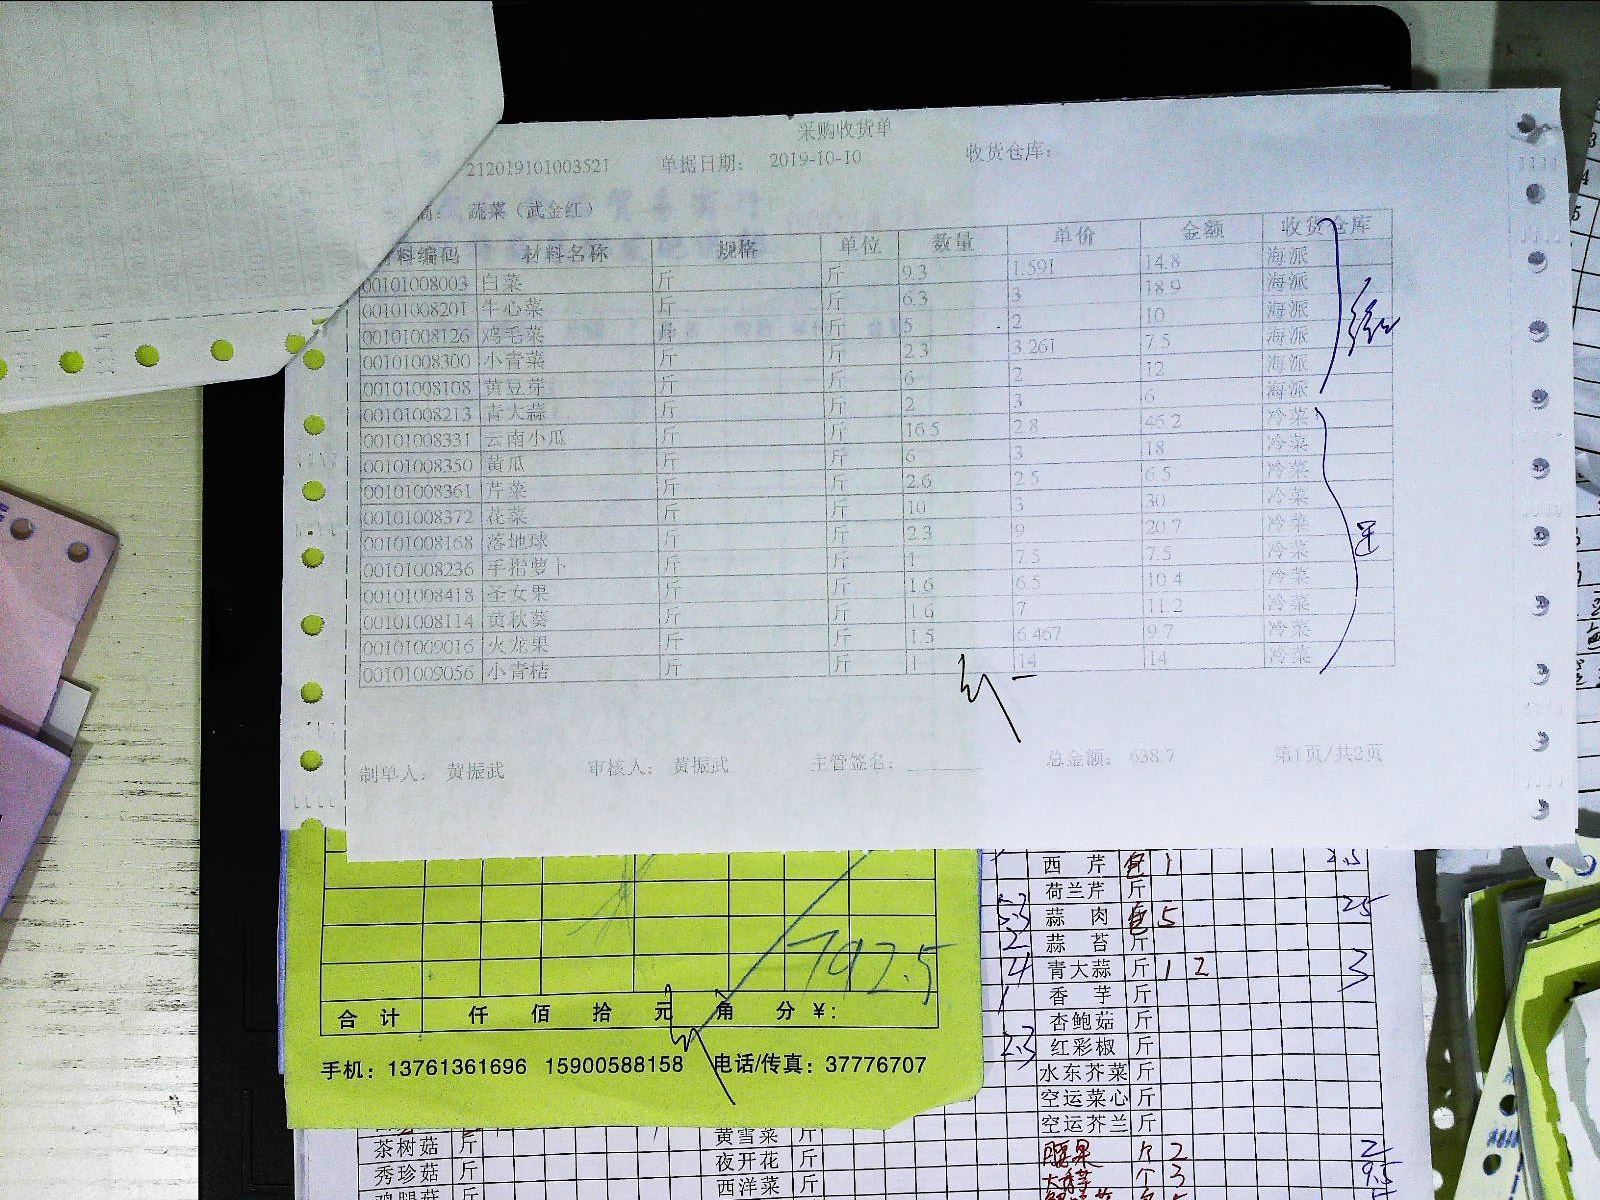 采购收货单
212019101003521 单据日期: 2019-10-10 收货仓库:
商: 蔬菜（武金红）
料编码 材料名称 规格 单位 数量 单价 金额 收货仓库
00101008003 白菜 斤 斤 9.3 1.591 14.8 海派
00101008201 牛心菜 斤 斤 6.3 3 18.9 海派
00101008126 鸡毛菜 斤 斤 5 2 10 海派
00101008300 小青菜 斤 斤 2.3 3.261 7.5 海派
00101008108 黄豆芽 斤 斤 6 2 12 海派
00101008213 青大蒜 斤 斤 2 3 6 海派
00101008331 云南小瓜 斤 斤 16.5 2.8 46.2 冷菜
00101008350 黄瓜 斤 斤 6 3 18 冷菜
00101008361 芹菜 斤 斤 2.6 2.5 6.5 冷菜
00101008372 花菜 斤 斤 10 3 30 冷菜
00101008168 落地球 斤 斤 2.3 9 20.7 冷菜
00101008236 手指萝卜 斤 斤 1 7.5 7.5 冷菜
00101008418 圣女果 斤 斤 1.6 6.5 10.4 冷菜
00101008114 黄秋葵 斤 斤 1.6 7 11.2 冷菜
00101009016 火龙果 斤 斤 1.5 6.467 9.7 冷菜
00101009056 小青桔 斤 斤 1 14 14 冷菜
制单人: 黄振武 审核人: 黄振武 主管签名: 总金额: 638.7 第1页/共2页
792.5
合 计 仟 佰 拾 元 角 分 ¥:
手机: 13761361696 15900588158 电话/传真: 37776707
西 芹 1 2.5
荷兰芹 斤
蒜 肉 5 25
2 蒜 苔 斤
4 青大蒜 斤 1 2 3
香 芋 斤
杏鲍菇 斤
2.3 红彩椒 斤
水东芥菜 斤
空运菜心 斤
空运芥兰 斤
茶树菇 斤 黄雪菜 斤 腰果 个 2 2
秀珍菇 斤 夜开花 斤 个 3 9.5
鸡腿菇 斤 西洋菜 斤